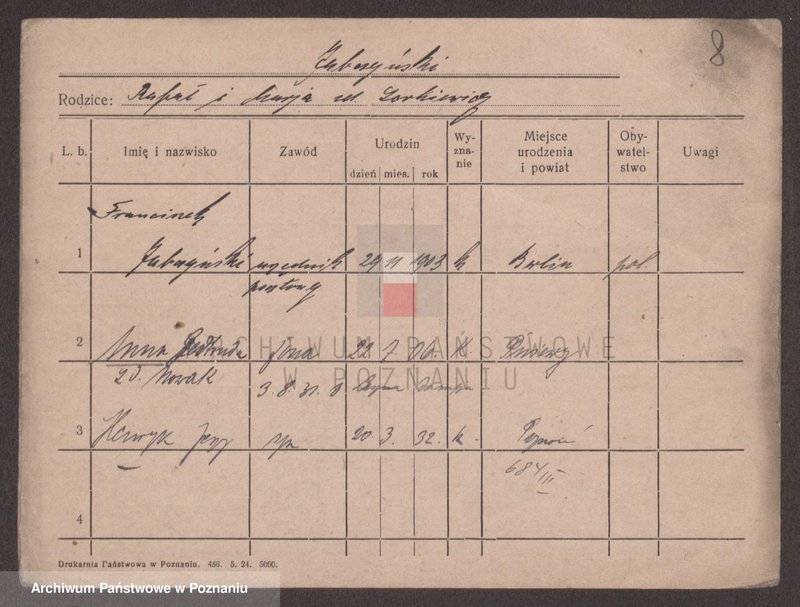 8
Rodzice: Rafał i Marja zd.
L. b. Imię i nazwisko Zawód Urodzin Wy-zna-nie Miejsce urodzenia i powiat Oby-watel-stwo Uwagi
dzień mies. rok
Franciszek
1 urzędnik 29 11 1903 k Berlin pol.
pocztowy
2 Anna Gertruda żona 22 7 06 k
zd. Nowak 3. 8. 31.
3 Henryk Jerzy syn 20. 3. 32. k. Poznań
684/III
4
ARCHIWUM PAŃSTWOWE
W POZNANIU
Drukarnia Państwowa w Poznaniu. 486. 5. 24. 5000.
Archiwum Państwowe w Poznaniu